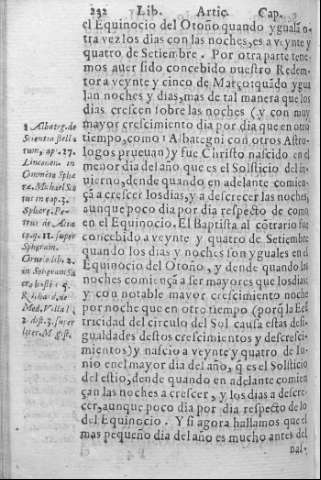 232 Lib. Artic. Cap.
el Equinocio del Otoño quando ygualã o-
tra vez los dias con las noches, es a veynte y
quatro de Setiembre. Por otra parte tene-
mos auer sido concebido nuestro Redem-
tor a veynte y cinco de Março: quãdo ygua
lan noches y dias, mas de tal manera que los
dias crescen sobre las noches (y con muy
mayor crescimiento dia por dia que en otro
tiempo, como Albategni con otros Astro-
logos prueuan) y fue Christo nascido en el
menor dia del año que es el Solsticio del in-
uierno, dende quando en adelante comien-
ça a crescer los dias, y a descrecer las noches,
aunque poco dia por dia respecto de como
en el Equinocio. El Baptista al cõtrario fue
concebido a veynte y quatro de Setiembre
quando los dias y noches son yguales en el
Equinocio del Otoño, y dende quando las
noches comiença a ser mayores que los dias
y con notable mayor crescimiento noche
por noche que en otro tiempo (porq̃ la Ecẽ
tricidad del circulo del Sol causa estas desi-
gualdades destos crescimientos y descresci-
mientos) y nascio a veynte y quatro de Iu-
nio en el mayor dia del año, q̃ es el Solsticio
del estio, dende quando en adelante comien
çan las noches a crescer, y los dias a descre-
cer, aunque poco dia por dia respecto de lo
del Equinocio. Y si agora hallamos que el
mas pequeño dia del año es mucho antes del
nal-
Albateg. de
Scientia stella
rum, cap. 27.
Linconien. in
Commẽto Sphæ
ræ. Michael Sco
tus in cap. 3.
Sphære. Pe-
trus de Alia
co. q. 12. super
Spheram.
2 dist. 3. super